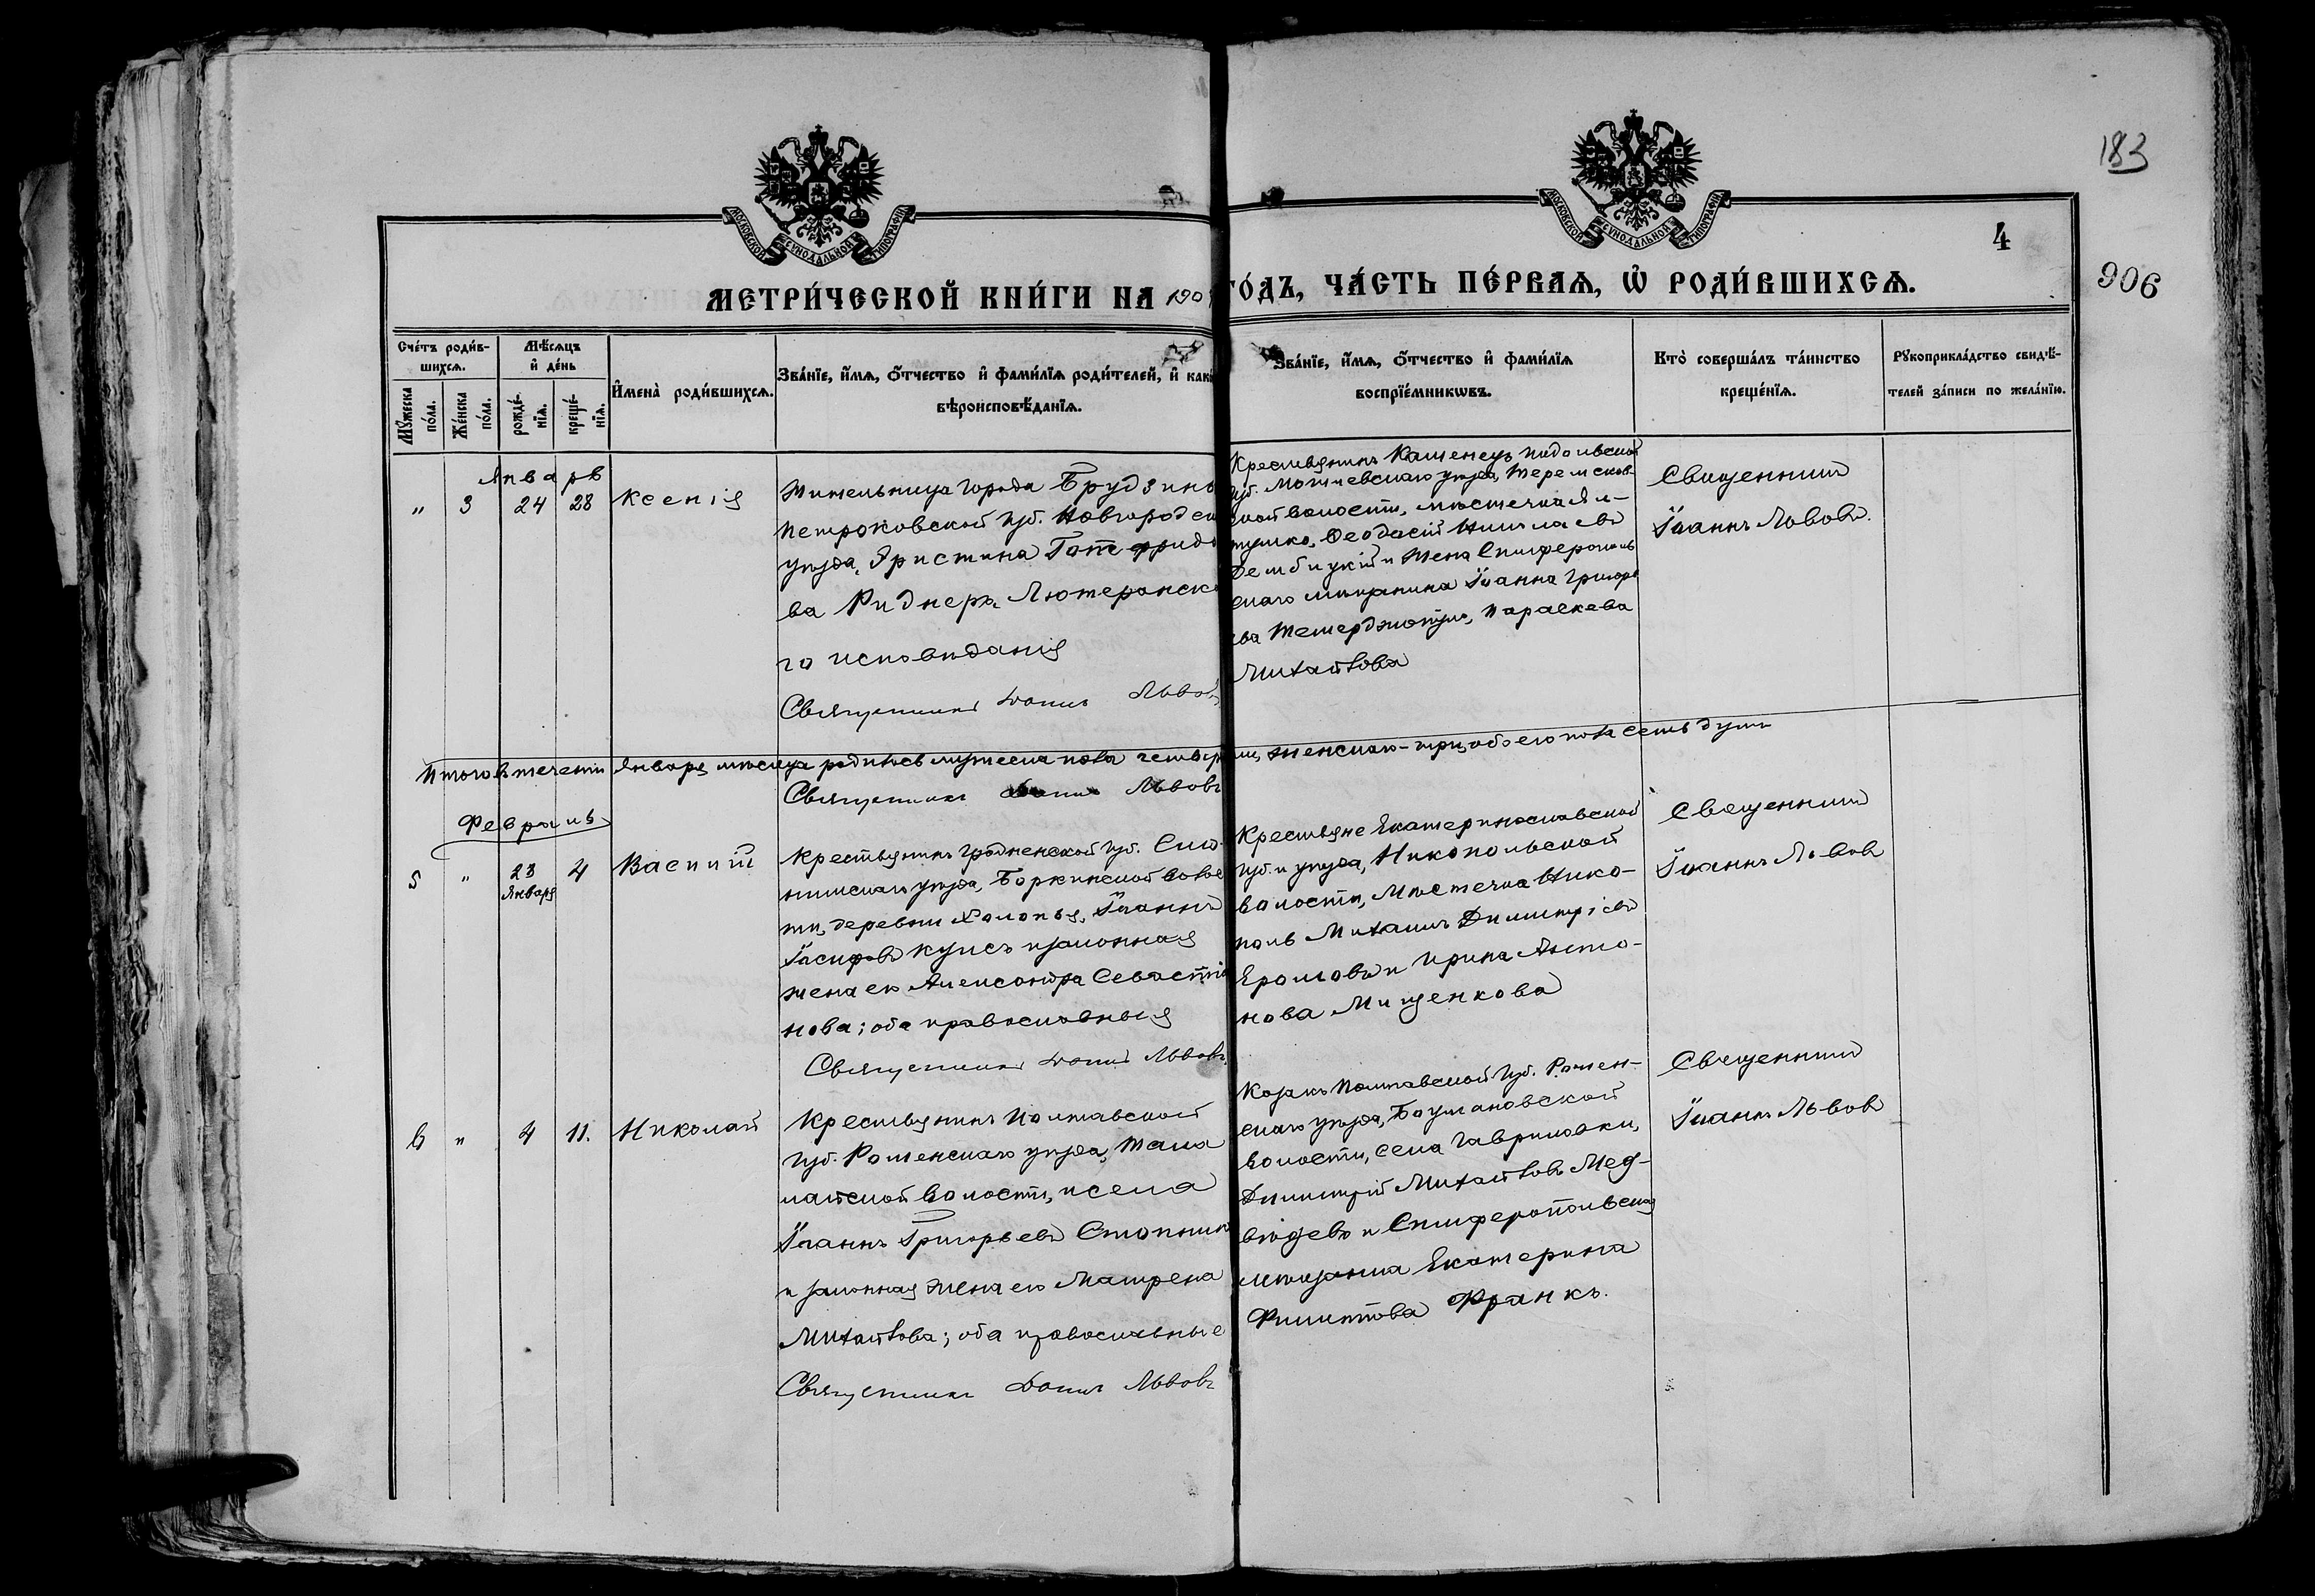 183
МОСКОВСКОЙ СѴНОДАЛЬНОЙ ТИПОГРАФІИ
МОСКОВСКОЙ СѴНОДАЛЬНОЙ ТИПОГРАФІИ
4
906
МЕТРИ́ЧЕСКОЙ КНИ́ГИ НА 190
ГО́ДЪ, ЧА́СТЬ ПЕ́РВАѦ, Ѡ҆ РОДИ́ВШИХСѦ.
Сче́тъ роди́в-
шихсѧ.
Мꙋ́жеска по́ла.
Же́нска по́ла.
Мѣ́сѧцъ
и҆ де́нь
рожде́-
нїѧ.
креще́-
нїѧ.
И҆мена̀ роди́вшихсѧ.
Зва́нїе, и҆́мѧ, ѻ҆́тчество и҆ фами́лїѧ роди́телей, и҆ как
вѣроисповѣ́данїѧ.
Зва́нїе, и҆́мѧ, ѻ҆́тчество и҆ фами́лїѧ
воспрїе́мникѡвъ.
Кто̀ соверша́лъ та́инство
креще́нїѧ.
Рꙋкоприкла́дство свидѣ́-
телей за́писи по жела́нїю.
Январь
" 3 24 28 Ксенія
Жительница города Брудзинъ
Петроковской губ. Новгородск
уѣзда, Христина Готфридо
ва Риднеръ Лютеранска
го исповѣданія
Священникъ Іоаннъ Львовъ
Крестьянинъ Каменецъ Подольской
губ. уѣзда,
ской волости, мѣстечка Ял-
тушко, Ѳеодосій Николаевъ
Дембицкій и Жена Симферополь
скаго мѣщанина Іоанна Григорь
ева Параскева
Михайлова
Священникъ
Іоаннъ Львовъ.
Итого въ теченіи Января мѣсяца родилось мужеска пола четыре, женскаго - три, обоего пола семь душъ
Священникъ Іоаннъ Львовъ
Февраль
5 " 23 4 Василій
Января
Крестьянинъ Гродненской губ. Сло-
нимскаго уѣзда, Боркинской волос
ти, деревни Холопья, Іоаннъ
Іосифовъ и законная
жена его Александра Севастія
нова; оба православныя
Священникъ Іоаннъ Львовъ
Крестьяне Екатеринославской
губ. и уѣзда, Никопольской
волости, Мѣстечка Нико-
поль Михаилъ Димитріевъ
и Ирина Анто-
нова Мищенкова
Священникъ
Іоаннъ Львов
6 " 4 11. Николай
Крестьянинъ Полтавской
губ. Роменскаго уѣзда,
волости, и села
Іоаннъ Григорьевъ
и законная жена его Матрена
Михайлова; оба православные
Священникъ Іоаннъ Львовъ
Козакъ Полтавской губ. Ромен-
скаго уѣзда,
волости, села Гавриловки,
Димитрій Михайловъ Мед-
вѣдевъ и Симферопольская
мѣщанка Екатерина
Филиппова Франкъ.
Священникъ
Іоаннъ Львов